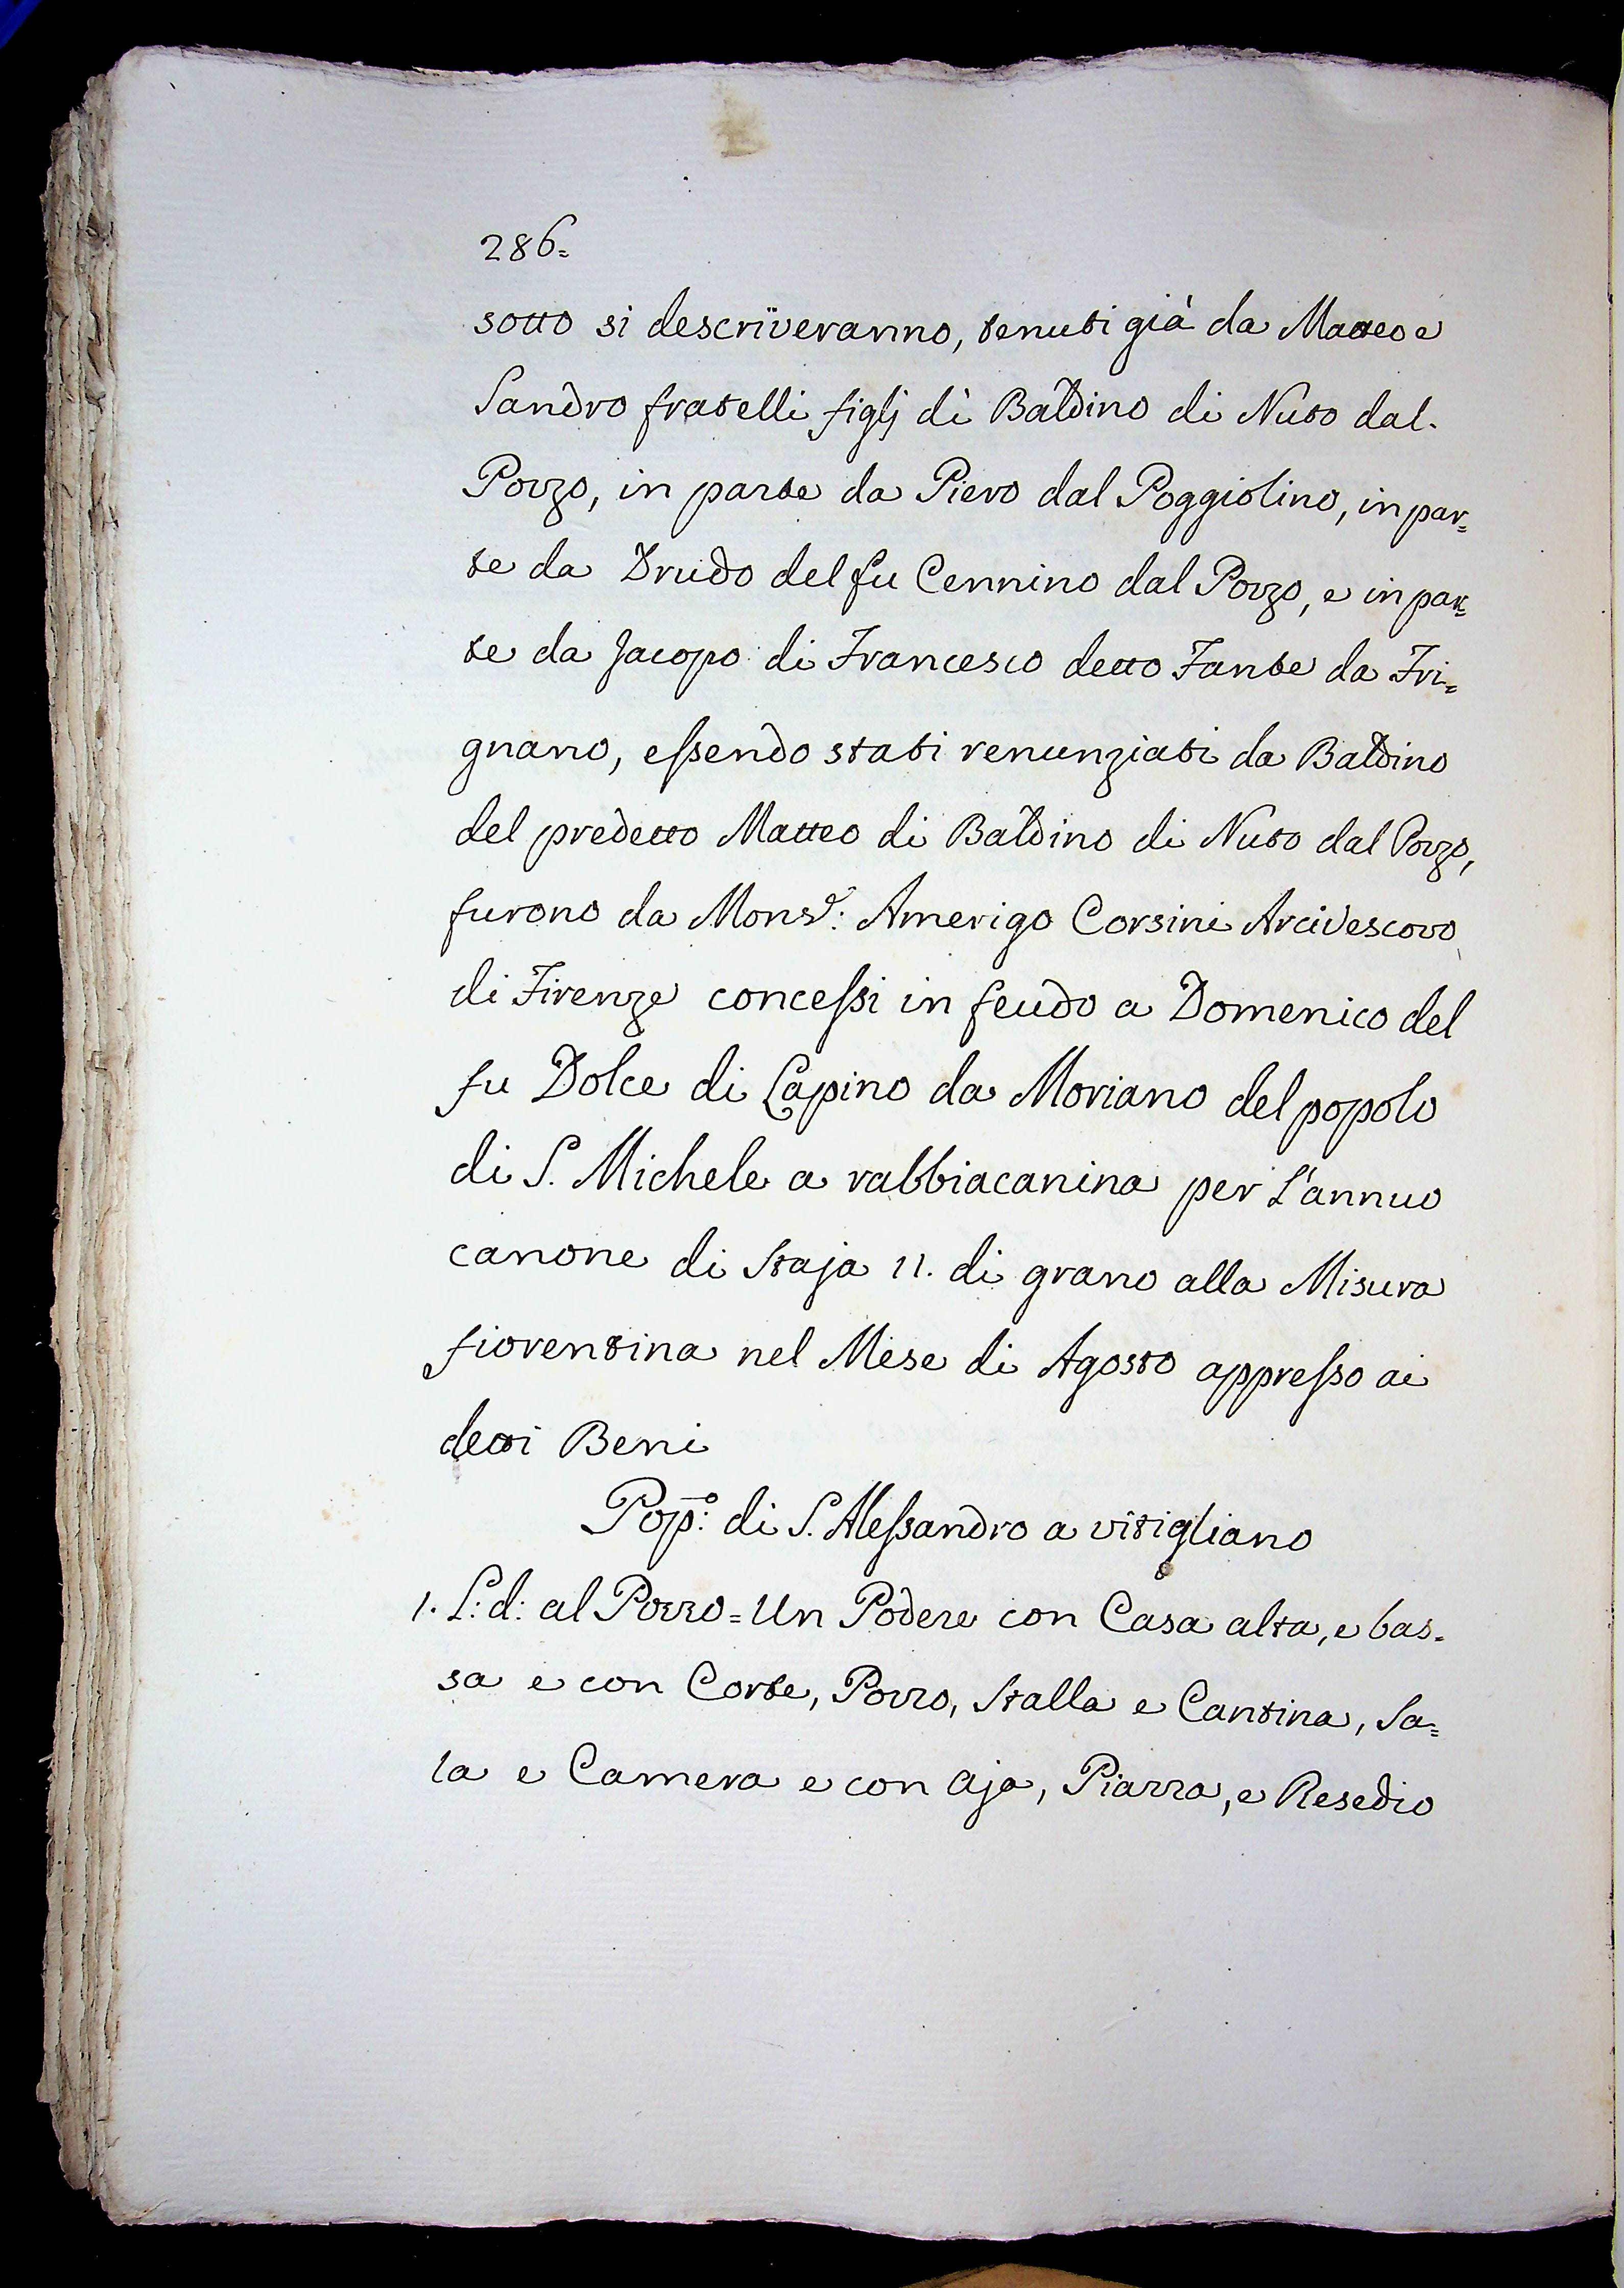 286=
sotto si descriveranno, tenuti già da Matteo e
Sandro fratelli figlj di Baldino di Nuto dal
Pozzo, in parte da Piero dal Poggiolino, in par=
te da Drudo del fu Cennino dal Pozzo, e in par=
te da Jacopo di Francesco detto Fante da Fri=
gnano, essendo stati renunziati da Baldino
del predetto Matteo di Baldino di Nuto dal Pozzo,
furono da Monsr: Amerigo Corsini Arcivescovo
di Firenze concessi in feudo a Domenico del
fu Dolce di Lapino da Moriano del popolo
di S. Michele a rabbiacanina per l'annuo
canone di Staja 11. di grano alla Misura
fiorentina nel Mese di Agosto appresso ai
detti Beni
Popo: di S. Alessandro a vitigliano
1. L: d: al Pozzo = Un Podere con Casa alta, e bas=
sa e con Corte, Pozzo, Stalla e Cantina, Sa=
la e Camera e con aja, Piazza, e Resedio